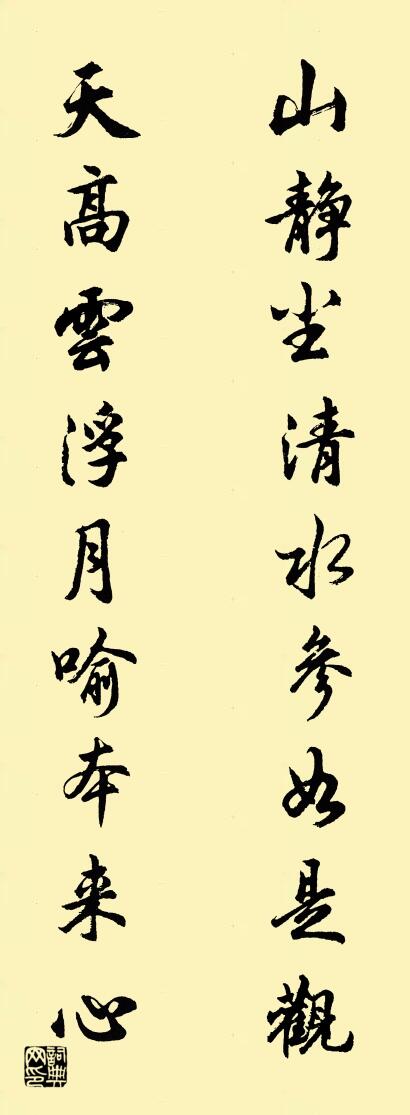 山静坐清水參如是觀
天高雲浮月喻本来心
詞典网印